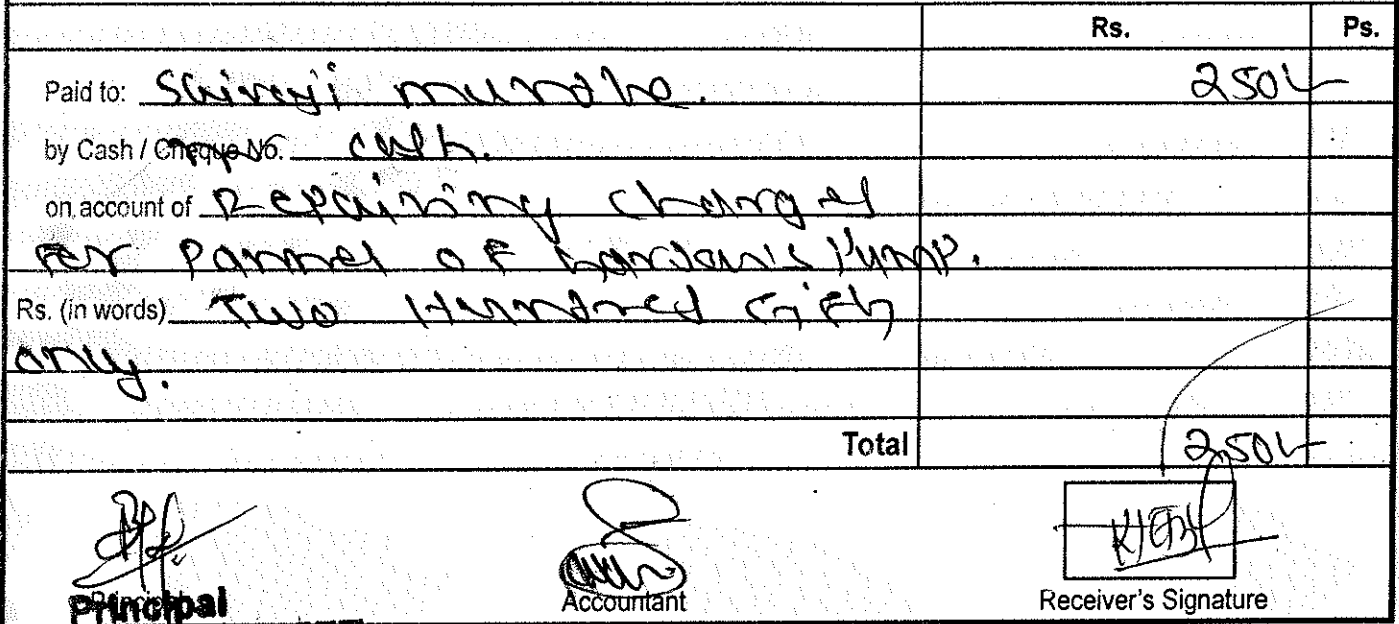 Rs. Ps.
Paid to: Shivaji mundhe. 250/-
by Cash / Cheque No. cash.
on account of Repairing charges
For Pannel of Garden's Pump.
Rs. (in words) Two Hundred Fifty
only.
Total 250/-
Principal Accountant Receiver's Signature